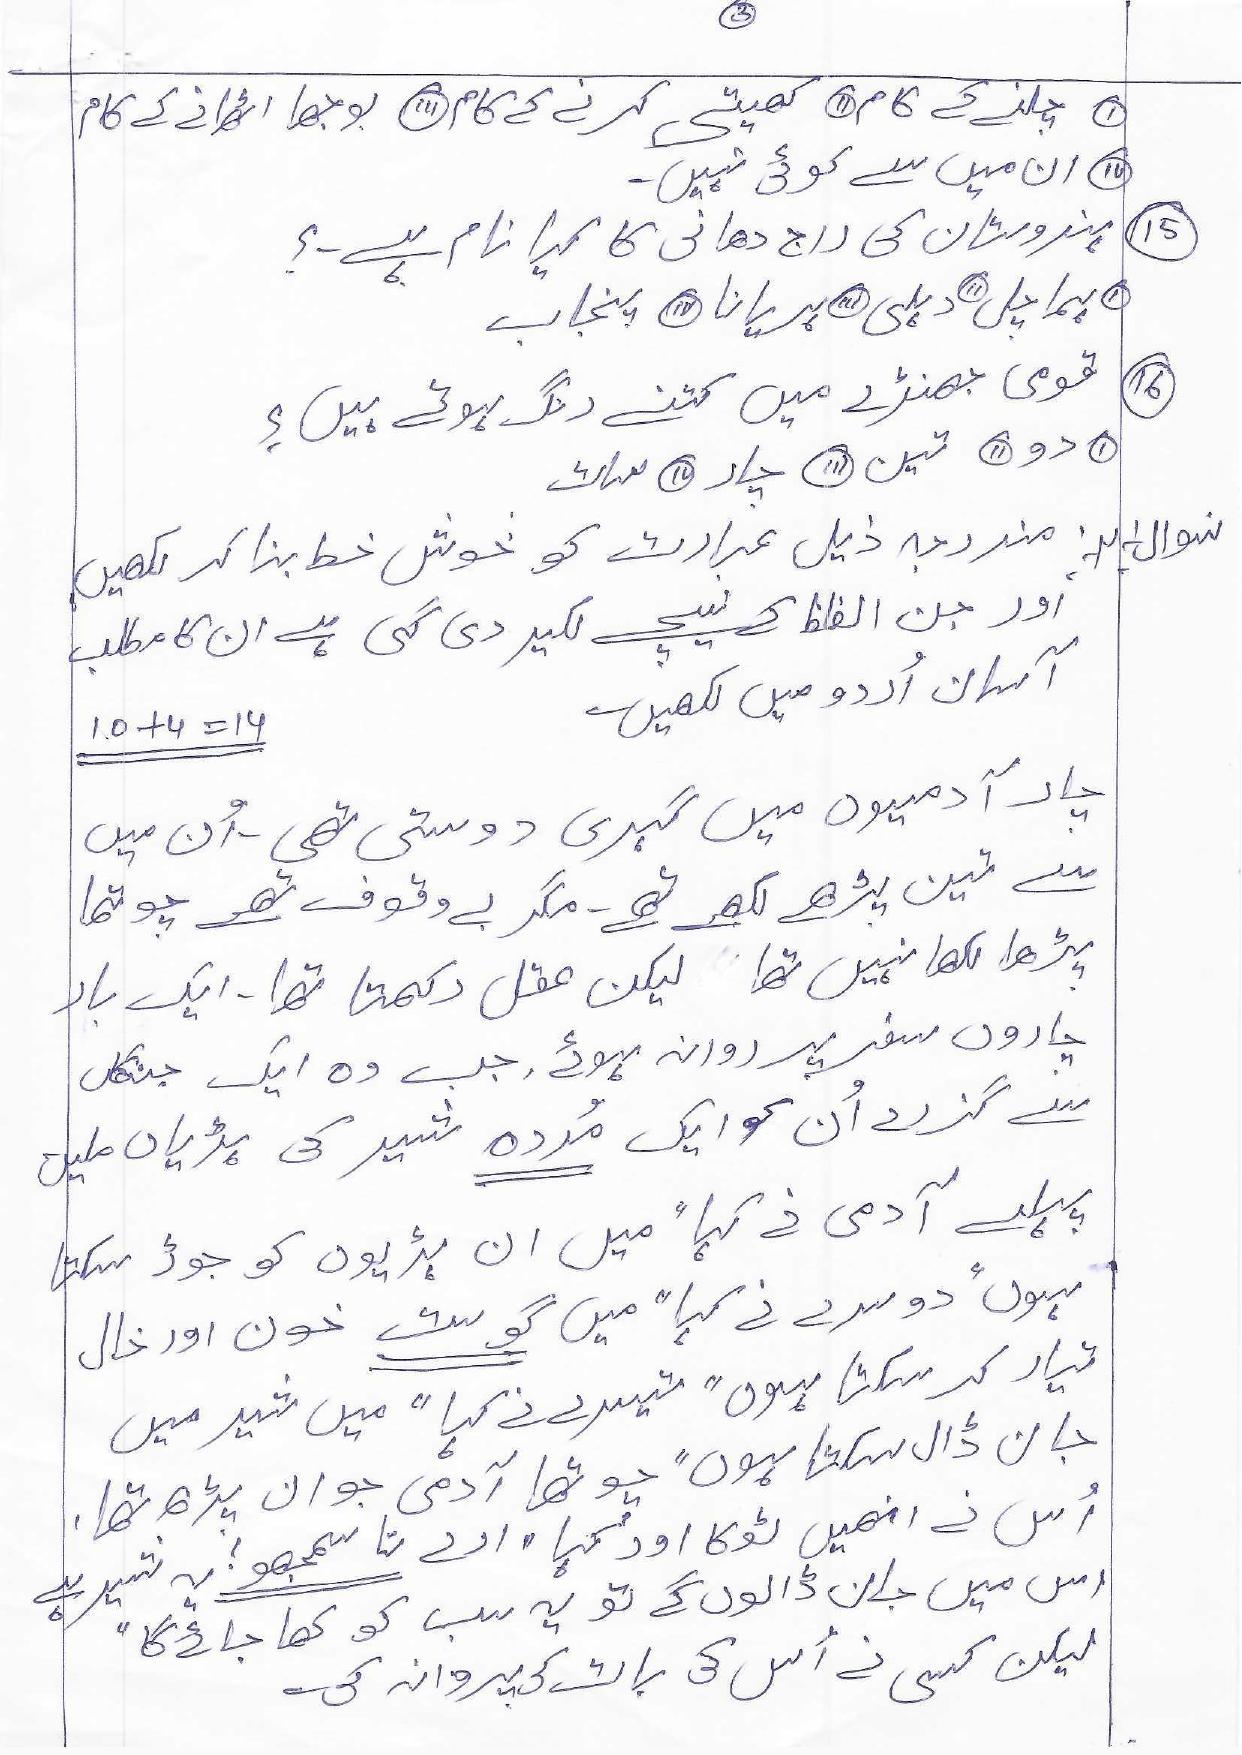 ③
(i) چلنے کے کام (ii) کھیتی کرنے کے کام (iii) بوجھا اٹھانے کے کام
(iv) ان میں سے کوئی نہیں۔
(15) ہندوستان کی راج دھانی کا کیا نام ہے۔؟
(i) ہماچل (ii) دہلی (iii) ہریانا (iv) پنجاب
(16) قومی جھنڑے میں کتنے رنگ ہوتے ہیں؟
(i) دو (ii) تین (iii) چار (iv) سات
سوال مندرجہ ذیل عبارت کو خوش خط بنا کر لکھیں
اور جن الفاظ کے نیچے لکیر دی گئی ہے ان کا مطلب
آسان اُردو میں لکھیں۔
10+4=14
چار آدمیوں میں گہری دوستی تھی۔ اُن میں
سے تین پڑھے لکھے تھے۔ مگر بے وقوف تھے چوتھا
پڑھا لکھا نہیں تھا لیکن عقل رکھتا تھا۔ ایک بار
چاروں سفر پر روانہ ہوئے، جب وہ ایک جنگل
سے گزرے اُن کو ایک مُردہ شیر کی ہڑیاں ملیں
پہلے آدمی نے کہا "میں ان ہڑیوں کو جوڑ سکتا
ہوں" دوسرے نے کہا "میں گوست خون اور خال
تیار کر سکتا ہوں" تیسرے نے کہا "میں شیر میں
جان ڈال سکتا ہوں" چوتھا آدمی جو ان پڑھ تھا،
اُس نے انھیں ٹوکا اور کہا "ارے نا سمجھو! یہ شیر ہے
اس میں جان ڈالوں گے تو یہ سب کو کھا جائے گا"
لیکن کسی نے اُس کی بات کی پروانہ کی۔